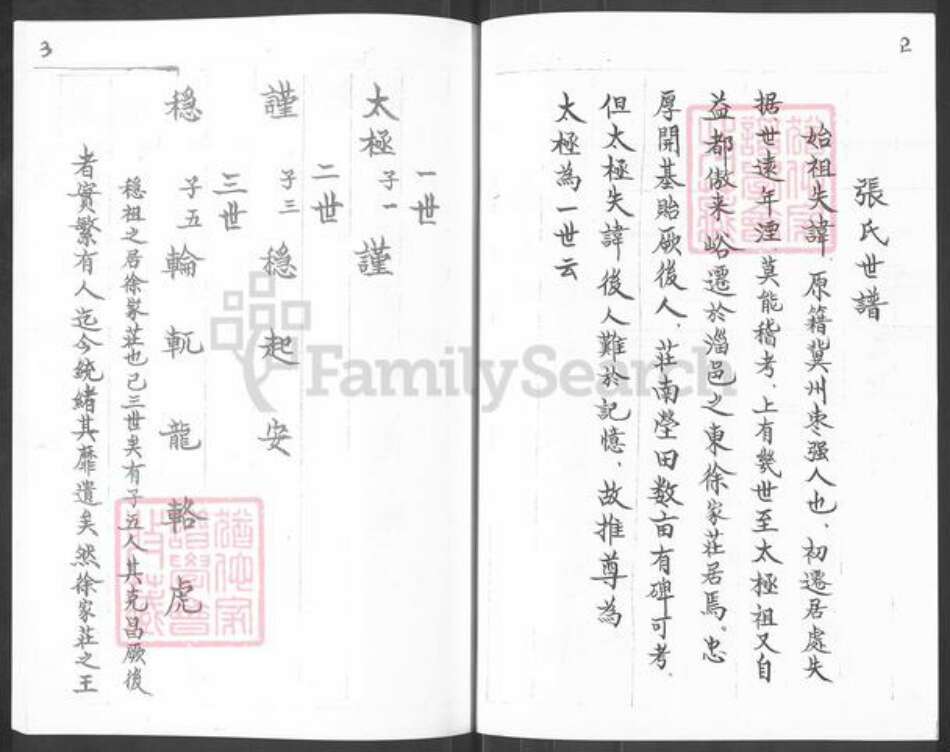 2
張氏世譜
始祖失諱.原籍冀州枣强人也、初遷居處失
据世遠年湮莫能稽考、上有幾世至太極祖又自
益都傲来峪遷於淄邑之東徐家莊居焉。忠
厚開基貽厥後人、莊南塋田数亩有碑可考.
但太極失諱後人難於記憶、故推尊為
太極為一世云
3
一世
太極 子一 謹
二世
謹 子三 穏 起 安
三世
穏 子五 輪 軏 龍 輅 虎
穏祖之居徐家莊也已三世矣有子五人其克昌厥後
者實繁有人迄今統緒其靡遺矣然徐家莊之王
FamilySearch